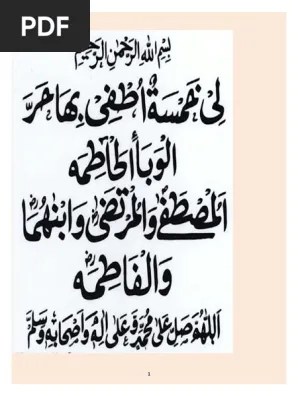 PDF
بِسْمِ اللهِ الرَّحْمٰنِ الرَّحِيْمِ
لِىْ خَمْسَةٌ اُطْفِىْ بِهَا حَرَّ
الْوَبَاۤءِ الْحَاطِمَه
اَلْمُصْطَفٰى وَالْمُرْتَضٰى وَابْنٰهُمَا
وَالْفَاطِمَه
اَللّٰهُمَّ صَلِّ عَلٰى مُحَمَّدٍ وَّعَلٰى اٰلِهٖ وَاَصْحَابِهٖ وَسَلِّمْ
1